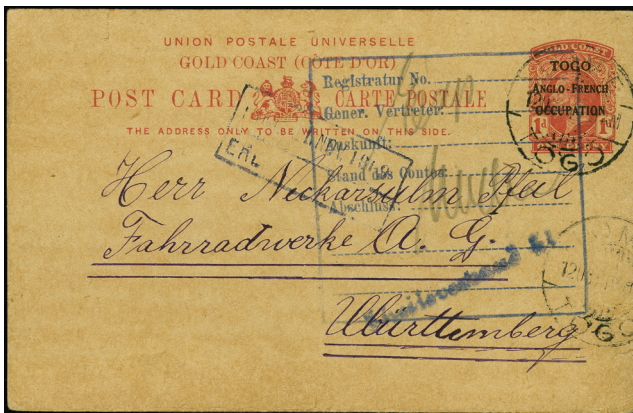 UNION POSTALE UNIVERSELLE
GOLD COAST (CÔTE D'OR)
POST CARD CARTE POSTALE
THE ADDRESS ONLY TO BE WRITTEN ON THIS SIDE.
GOLD COAST
TOGO
ANGLO-FRENCH
OCCUPATION
1d 1d
Registratur No.
Gener. Vertreter:
Auskunft:
Stand des Contos:
Abschluss:
Herr Neckarsulm Pfeil
Fahrradwerke A. G.
Württemberg
TOGO